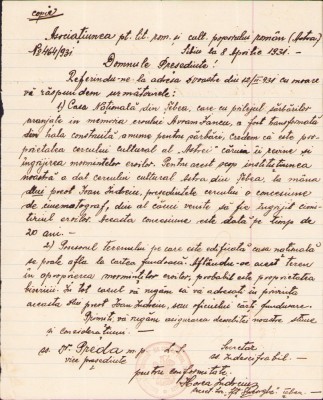 copie
Asociatiunea pt. lit. rom. și cult. poporului român (Astra)
Nº 464/931 Sibiu la 8 Aprilie 1931.
Domnule Președinte!
Referindu-ne la adresa Dvoastre din 931 cu onoare
vă răspundem următoarele:
1) Casa Națională din Țebea, care cu prilejul sărbărilor
aranjate în memoria eroului Avram Iancu, a fost transformată
din hala construită anume pentru sărbări, credem că este pro-
prietatea cercului cultural al „Astrei" căruia îi revine și
îngrijirea mormintelor eroilor. Pentru acest scop instituțiunea
noastră a dat cercului cultural Astra din Țebea, la mâna
preot Ioan președintele cercului o concesiune
de cinematograf, din al cărui venite să fie îngrijit cimi-
tirul eroilor. Aceasta concesiune este dată pe timp de
20 ani. -
2) Posesorul terenului pe care este edificată casa națională
se poate afla la cartea funduară. Aflându-se acest teren
în apropierea mormintelor eroilor, probabil este proprietatea
bisericii. În tot cazul vă rugăm că vă adresați în privința
aceasta preot Ioan sau oficiului cărț. funduare.
Primiți, vă rugăm asigurarea deosebitei noastre stime
și considerațiuni.
ss. Dr. Preda m.p. L.S. Secretar
vice președinte ss. indescifrabil.
pentru conformitate
Horea